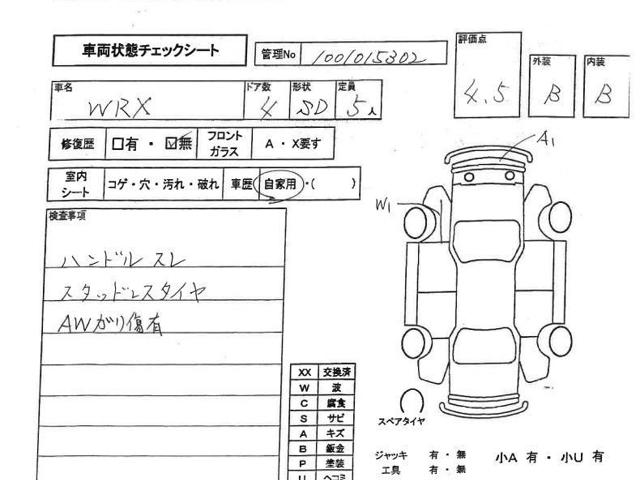 車両状態チェックシート 管理No 1001015302
評価点 4.5 外装 B 内装 B
車名 WRX ドア数 4 形状 SD 定員 5人
修復歴 □有・☑無 フロントガラス A・X要す
室内シート コゲ・穴・汚れ・破れ 車歴 自家用・( )
検査事項
ハンドル スレ
スタッドレスタイヤ
AWガリ傷有
A1
W1
XX 交換済
W 波
C 腐食
S サビ
A キズ
B 鈑金
P 塗装
U ヘコミ
スペアタイヤ
ジャッキ 有・無
工具 有・無
小A 有・小U 有